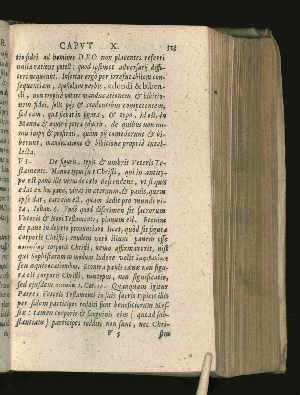 CAPVT X.
tio fidei ad homines DEO non placentes referri
nulla ratione potest; quod ipsimet adversarij diffi-
teri nequeunt. Infertur ergò per
sequentiam, Apostolum verbis, edendi & biben-
di, non propriè oitare manducationem & bibitio-
nem fidei, solis pijs & credentibus competentem,
sed eam, quæ fiebat in figura, & typo, id est, in
Manna & aquæ è petra eductæ, de quibus non mi-
nus impij & profani, quàm pij comederunt & bi-
berunt, manducatione & bibitione propriè intel-
lecta.
VI. De figuris, typis & umbris Veteris Te-
stamenti. Manna typus fuit Christi, qui in antity-
po est panis ille verus de cælo descendens, ut si quis
edat ex hoc pane, vivat in æternum, & panis, quem
ipse dat, caro sua est, quam dedit pro mundi vi-
ta, Johan. 6. Vnde quod discrimen sit sacrorum
Veteris & Novi Testamenti, planum est. Etenim
de pane in deserto pronuntiare licet, quod sit figura
corporis Christi; eundem verò illum panem esse
corporis Christi, nemo affirmaverit, nisi
qui Sophistarum in modum ludere velit
seu æquivocationibus. Econtra panis cœnæ non figu-
ra est corporis Christi, nuntupus, non significatio,
sed ejusdem 1. Cor. 10. Quanquam igitur
Patres Veteris Testamenti in suis sacris typicis illis
per fidem participes redditi sunt beneficiorum Mes-
siæ: tamen corporis & sanguinis ejus; quoad sub-
stantiam; participes redditi non sunt, nec Chri-
V 5 stus